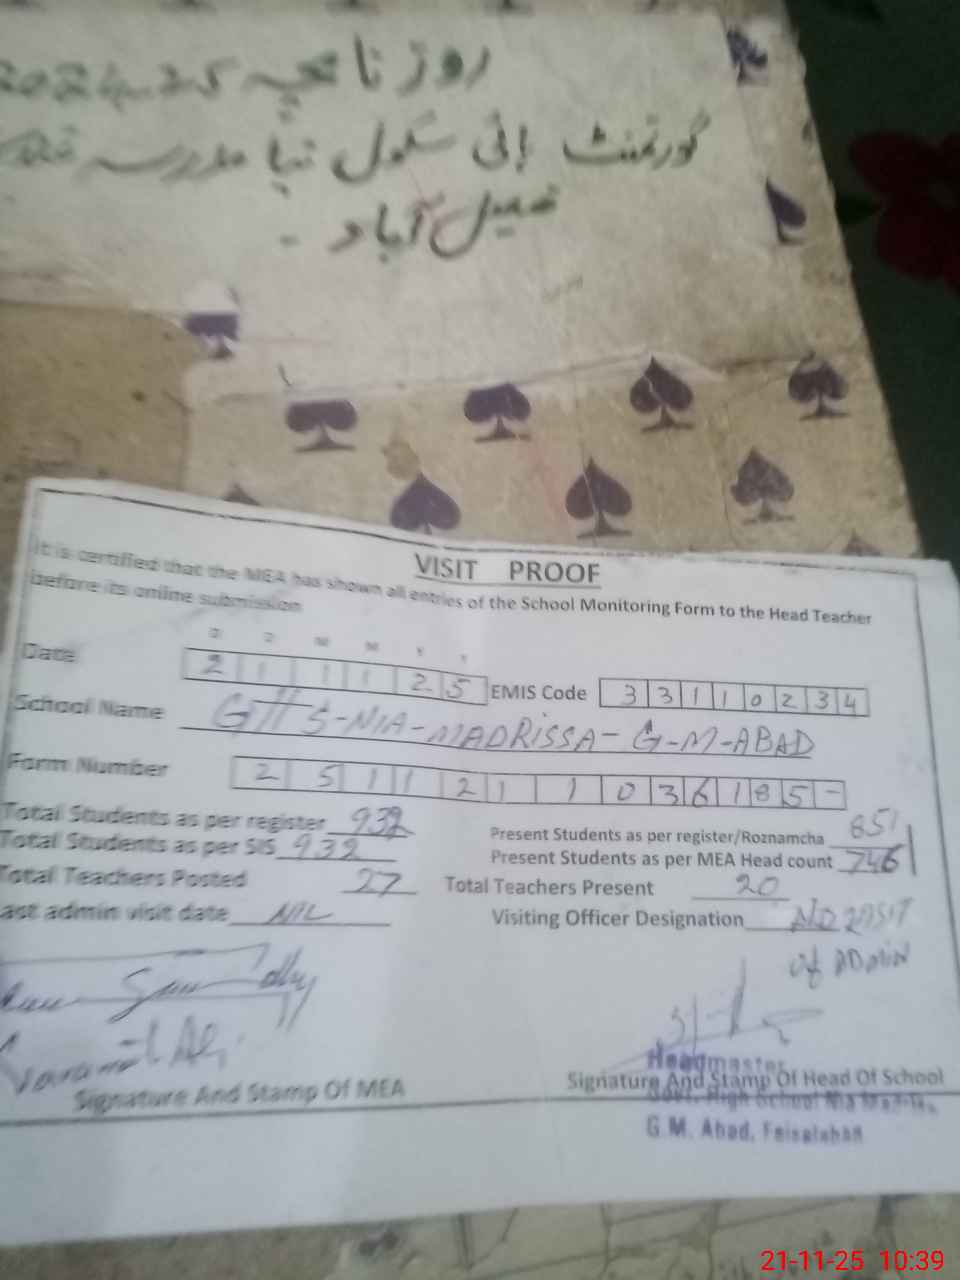 روزنامچہ
گورنمنٹ ہائی سکول نیا مدرسہ
فیصل آباد -
VISIT PROOF
It is certified that the MEA has shown all entries of the School Monitoring Form to the Head Teacher
before its online submission
D D M M Y Y
Date 2 1 1 1 2 5 EMIS Code 3 3 1 1 0 2 3 4
School Name GHS-NIA-MADRISSA-G-M-ABAD
Form Number 2 5 1 1 2 1 1 0 3 6 1 8 5 -
Total Students as per register 932 Present Students as per register/Roznamcha 851
Total Students as per SIS 932 Present Students as per MEA Head count 746
Total Teachers Posted 27 Total Teachers Present 20
ast admin visit date NIL Visiting Officer Designation NO VISIT
of ADMIN
Headmaster
Signature And Stamp Of MEA Signature And Stamp Of Head Of School
Govt. High School Nia
G.M. Abad, Faisalabad
21-11-25 10:39